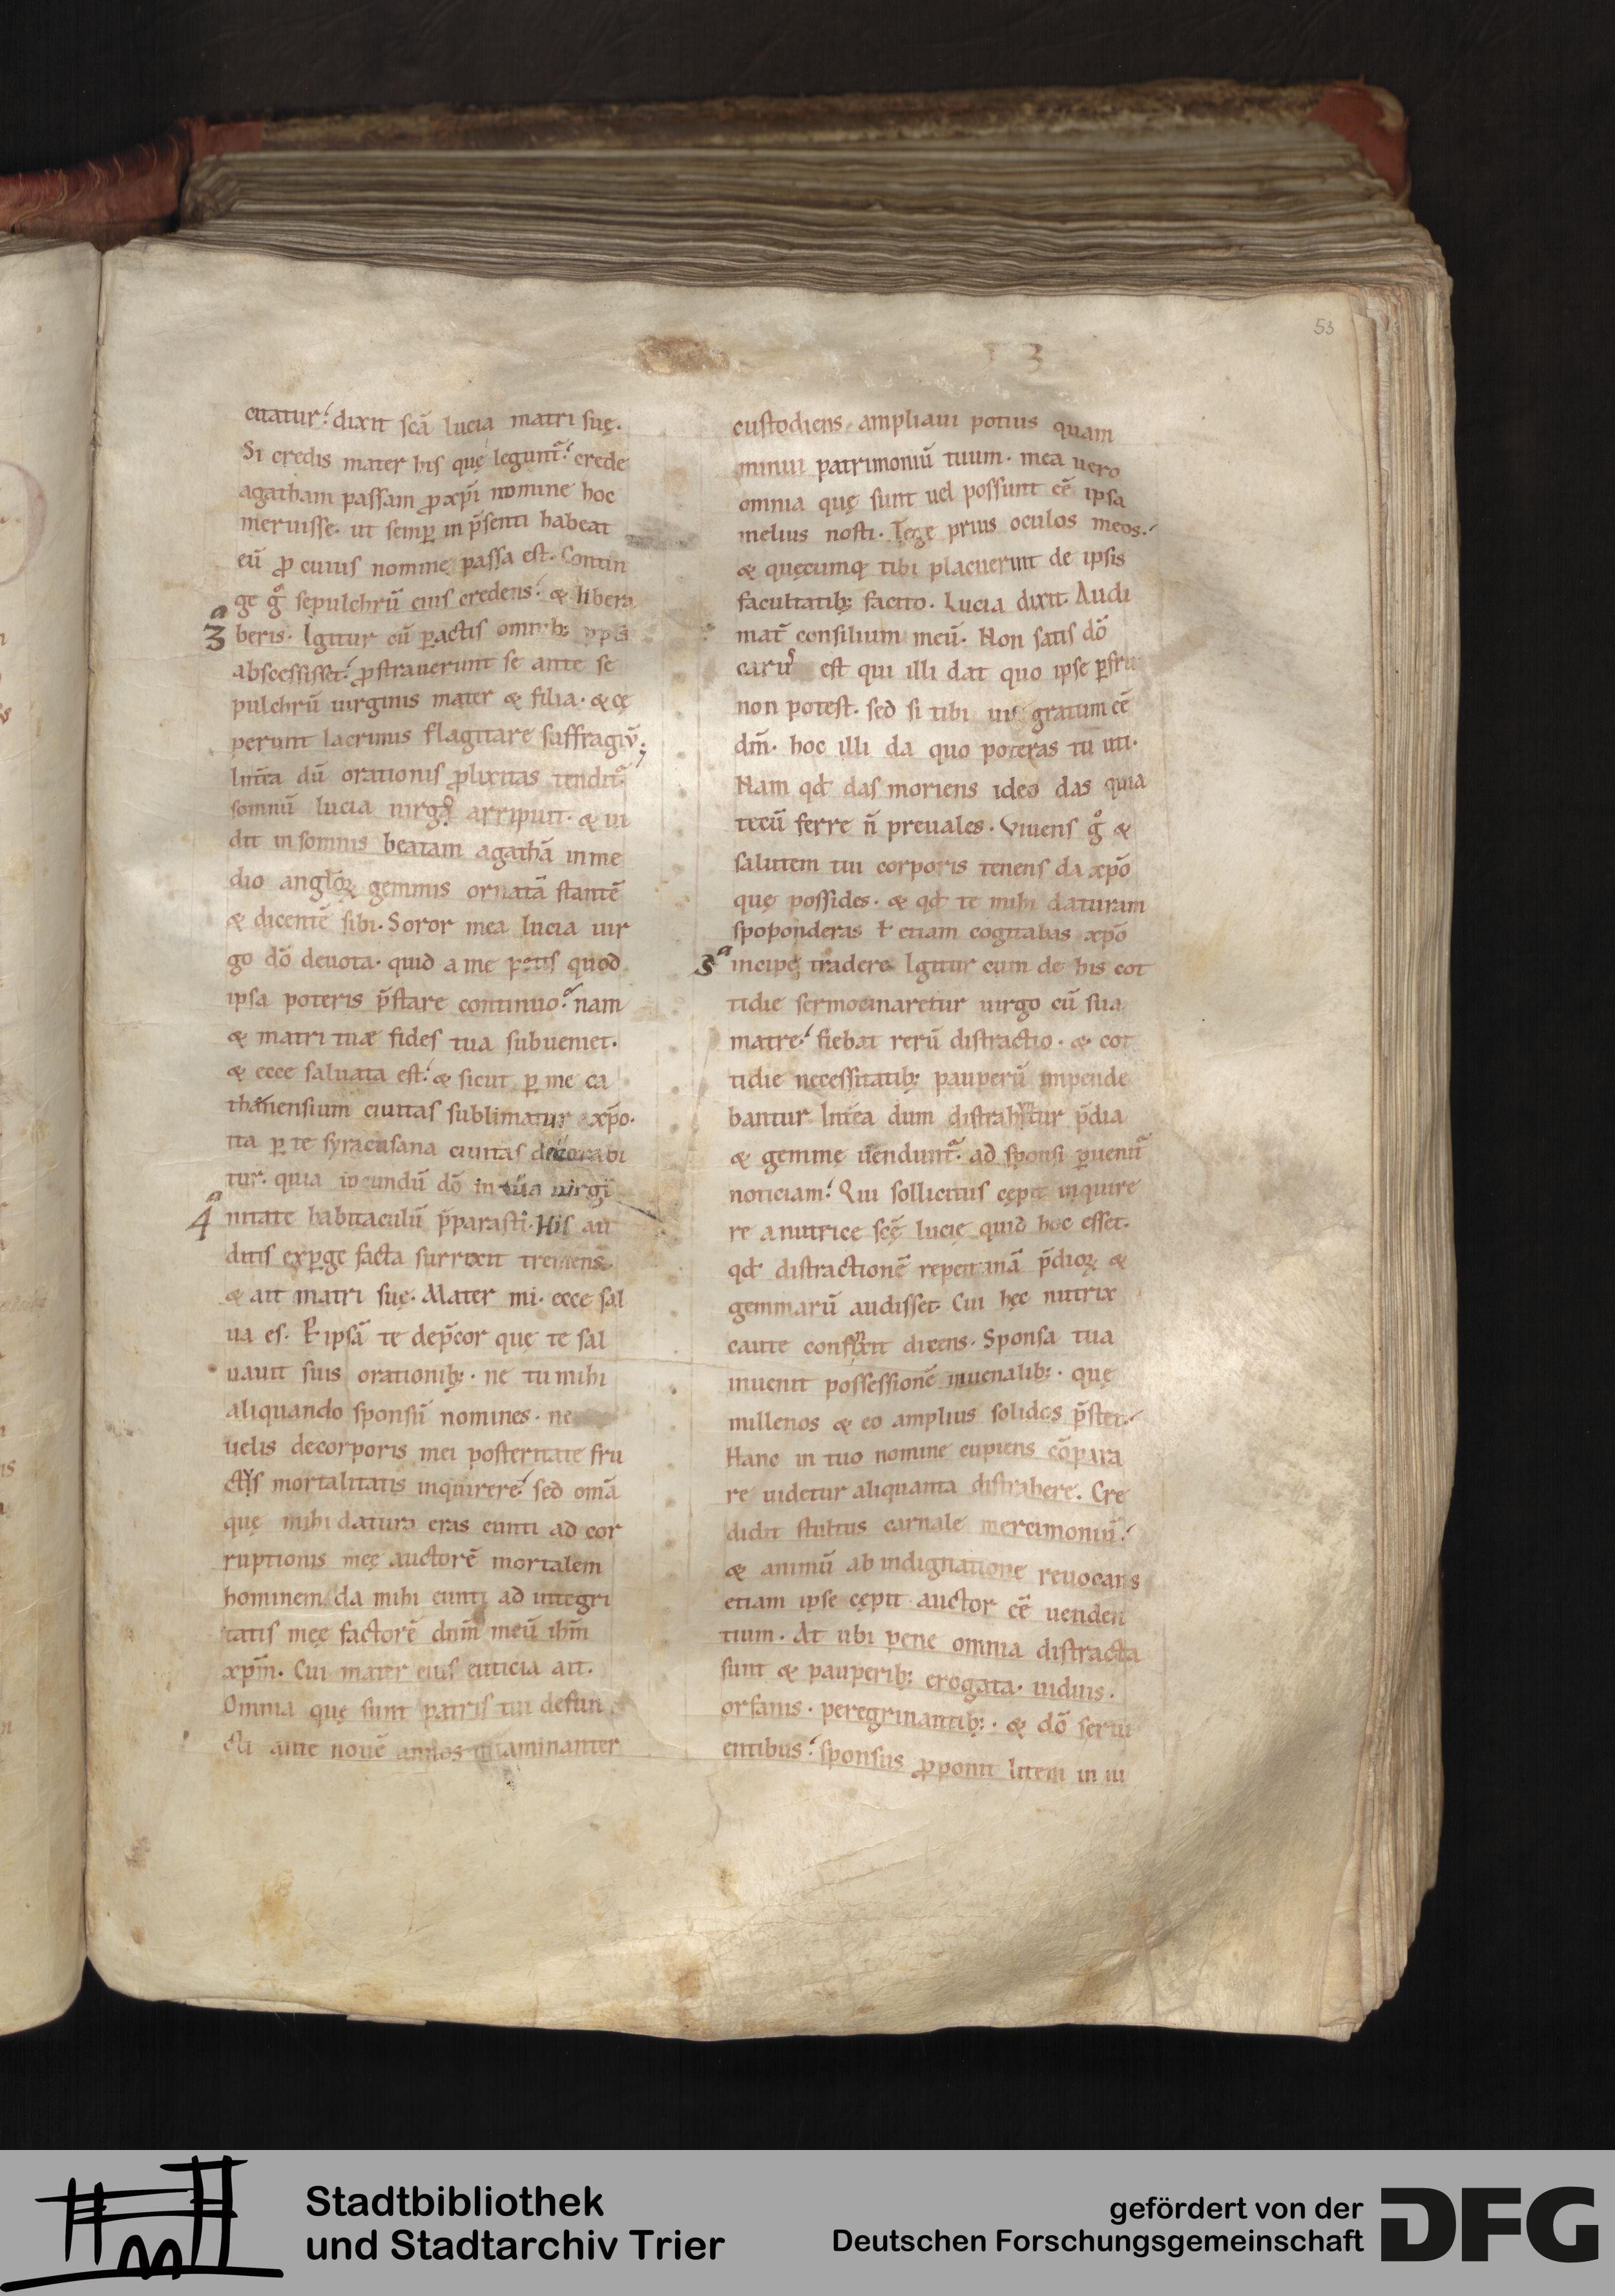 53
3
citatur. dixit scā lucia matri suę.
Si credis mater his quę legunt̄. crede
agatham passam ꝓ xp̄i nomine hoc
meruisse. ut semꝑ in p̄senti habeat
eū ꝓ cuius nomine passa est. Contin
ge gͦ sepulchrū eius credens. & libera
3ᵃ beris. Igitur cū ꝑactis omnib;
abscessisset. ꝓstrauerunt se ante se
pulchrū uirginis mater & filia. & cę
perunt lacrimis flagitare suffragiū.
Int̄ea dū orationis ꝓlixitas tendit̄.
somnū lucia uirgo arripuit. & ui
dit in somnis beatam agathā in me
dio angloꝝ gemmis ornatā stantē
& dicentē sibi. Soror mea lucia uir
go dō deuota. quid a me petis quod
ipsa poteris p̄stare continuo. nam
& matri tuæ fides tua subueniet.
& ecce saluata est. & sicut ꝑ me ca
thanensium ciuitas sublimatur xp̄o.
ita ꝑ te syracusana ciuitas decorabi
tur. quia iocundū dō in tua uirgi
4ᵃ nitate habitaculū p̄parasti. His au
ditis exꝑge facta surrexit tremens.
& ait matri suę. Mater mi. ecce sal
ua es. ꝑ ipsā te dep̄cor que te sal
uauit suis orationib;. ne tu mihi
aliquando sponsū nomines. ne
uelis de corporis mei posteritate fru
ctus mortalitatis inquirere. sed omā
quę mihi datura eras eunti ad cor
ruptionis męę auctorē mortalem
hominem. da mihi eunti ad integri
tatis męę factorē dnm̄ meū ihm̄
xpm̄. Cui mater eius euticia ait.
Omnia quę sunt patris tui defun
cti ante nouē annos
custodiens. ampliaui potius quam
minui patrimoniū tuum. mea uero
omnia quę sunt uel possunt eē ipsa
melius nosti. Tege prius oculos meos.
& quęcumq; tibi placuerint de ipsis
facultatib; facito. Lucia dixit. Audi
mat̄ consilium meū. Non satis dō
carus est qui illi dat quo ipse ꝑfrui
non potest. sed si tibi uis gratum eē
dm̄. hoc illi da quo poteras tu uti.
Nam qđ das moriens ideo das quia
tecū ferre n̄ preuales. Viuens gͦ &
salutem tui corporis tenens da xp̄o
quę possides. & qđ te mihi daturam
spoponderas ł etiam cogitabas xp̄o
5ᵃ incipe tradere. Igitur cum de his cot
tidie sermocinaretur uirgo cū sua
matre. fiebat rerū distractio. & cot
tidie necessitatib; pauperū impende
bantur. Int̄ea dum distrahuntur p̄dia
& gemmę uendunt̄. ad sponsi ꝑuenit̄
noticiam. Qui sollicitus cępit inquire
re a nutrice scę̄ lucię quid hoc esset.
qđ distractionē repentinā p̄dioꝝ &
gemmarū audisset. Cui hęc nutrix
caute confinxit dicens. Sponsa tua
inuenit possessionē inuenalib;. quę
millenos & eo amplius solidos p̄stet.
Hanc in tuo nomine cupiens cōpara
re uidetur aliquanta distrahere. Cre
didit stultus carnale mercimoniū.
& animū ab indignatione reuocans
etiam ipse cępit auctor eē uenden
tium. At ubi pene omnia distracta
sunt & pauperib; erogata. uiduis.
orfanis. peregrinantib;. & dō serui
entibus. sponsus ꝓponit litem in iu
Stadtbibliothek
und Stadtarchiv Trier
gefördert von der
Deutschen Forschungsgemeinschaft
DFG